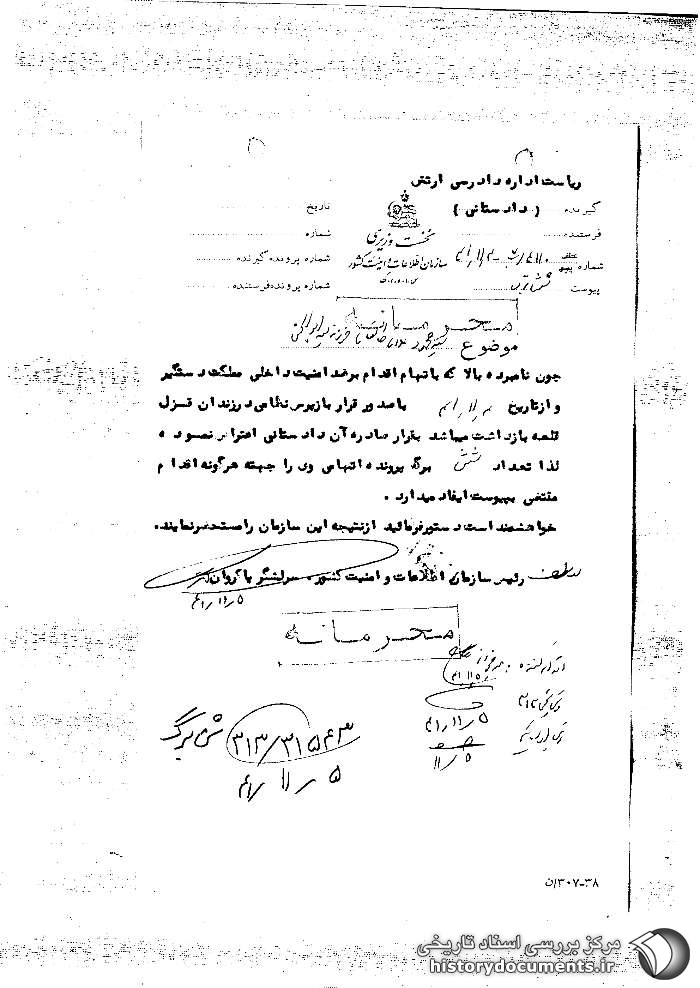 ریاست اداره دادرسی ارتش
گیرنده (دادستانی)
تاریخ
نخست وزیری
سازمان اطلاعات و امنیت کشور
س.ا.و.ا.ک
فرستنده
شماره
شماره
شماره پرونده گیرنده
پیوست
شماره پرونده فرستنده
محرمانه
موضوع
چون نامبرده بالا که باتهام اقدام برضد امنیت داخلی مملکت دستگیر
و از تاریخ باصدور قرار بازپرس نظامی در زندان قزل
قلعه بازداشت میباشد بقرار صادره آن دادستانی اعتراض نموده
لذا تعداد شش برگ پرونده اتهامی وی را جهته هرگونه اقدام
مقتضی بپیوست ایفاد میدارد.
خواهشمند است دستور فرمائید از نتیجه این سازمان را مستحضر نمایند.
رئیس سازمان اطلاعات و امنیت کشور. سرلشگر پاکروان
۴۱/۱۱/۵
محرمانه
اقدام کننده
۴۱/۱۱/۵
۴۱/۱۱/۵
۱۱/۵
۳۱۳/۳۱۵۴۳ شش برگ
۴۱/۱۱/۵
۳۰۷-۳۸/ن
مرکز بررسی اسناد تاریخی
historydocuments.ir